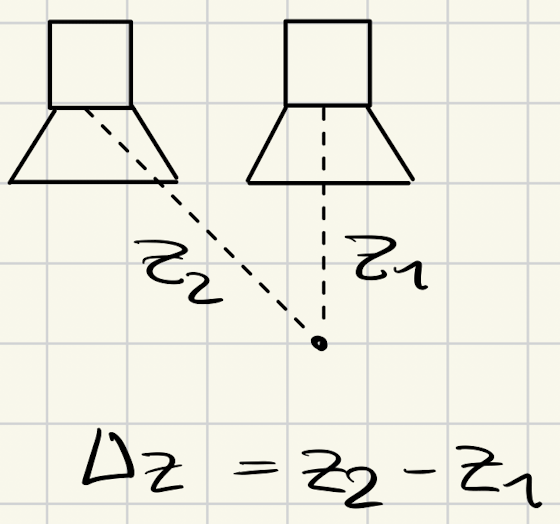 z₂ z₁
Δz = z₂ - z₁